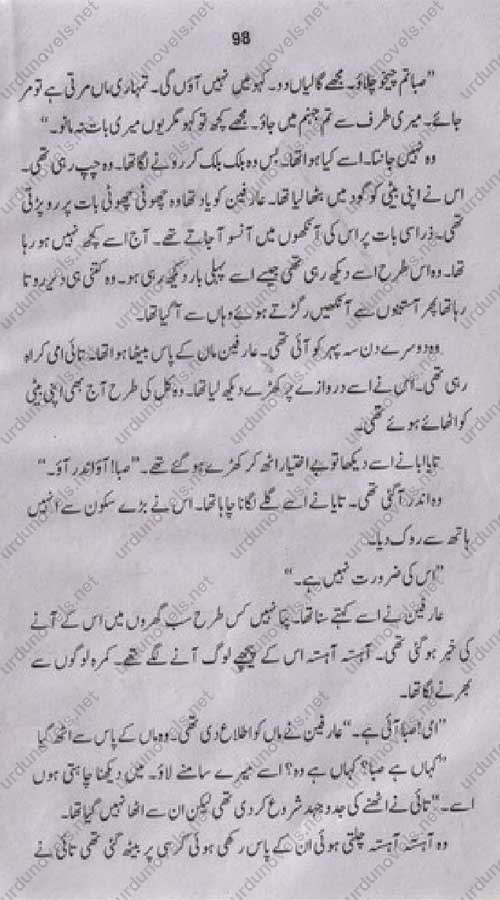 98
”صبا تم چیخو چلاؤ۔ مجھے گالیاں دو۔ کہو میں نہیں آؤں گی۔ تمہاری ماں مرتی ہے تو مر
جائے۔ میری طرف سے تم جہنم میں جاؤ۔ مجھے کچھ تو کہو مگر یوں میری بات نہ مانو۔“
وہ نہیں جانتا۔ اسے کیا ہوا تھا۔ بس وہ بلک بلک کر رونے لگا تھا۔ وہ چپ رہی تھی۔
اس نے اپنی بیٹی کو گود میں بٹھا لیا تھا۔ عارفین کو یاد تھا وہ چھوٹی چھوٹی بات پر رو پڑتی
تھی۔ ذرا سی بات پر اس کی آنکھوں میں آنسو آ جاتے تھے۔ آج اسے کچھ نہیں ہو رہا
تھا۔ وہ اس طرح اسے دیکھ رہی تھی جیسے اسے پہلی بار دیکھ رہی ہو۔ وہ کتنی ہی دیر روتا
رہا تھا پھر آستینوں سے آنکھیں رگڑتے ہوئے وہاں سے آ گیا تھا۔
وہ دوسرے دن سہ پہر کو آئی تھی۔ عارفین ماں کے پاس بیٹھا ہوا تھا۔ تائی امی کراہ
رہی تھی۔ اس نے اسے دروازے پر کھڑے دیکھ لیا تھا۔ وہ کل کی طرح آج بھی اپنی بیٹی
کو اٹھائے ہوئے تھی۔
تایا ابا نے اسے دیکھا تو بے اختیار اٹھ کر کھڑے ہو گئے تھے۔ ”صبا! آؤ اندر آؤ۔“
وہ اندر آ گئی تھی۔ تایا نے اسے گلے لگانا چاہا تھا۔ اس نے بڑے سکون سے انہیں
ہاتھ سے روک دیا۔
”اس کی ضرورت نہیں ہے۔“
عارفین نے اسے کہتے سنا تھا۔ پتا نہیں کس طرح سب گھروں میں اس کے آنے
کی خبر ہو گئی تھی۔ آہستہ آہستہ اس کے پیچھے لوگ آنے لگے تھے۔ کمرہ لوگوں سے
بھرنے لگا تھا۔
”امی! صبا آئی ہے۔“ عارفین نے ماں کو اطلاع دی تھی۔ وہ ماں کے پاس سے اٹھ گیا
”کہاں ہے صبا؟ کہاں ہے وہ؟ اسے میرے سامنے لاؤ۔ میں دیکھنا چاہتی ہوں
اسے۔“ تائی نے اٹھنے کی جدوجہد شروع کر دی تھی لیکن ان سے اٹھا نہیں گیا تھا۔
وہ آہستہ آہستہ چلتی ہوئی ان کے پاس رکھی ہوئی کرسی پر بیٹھ گئی تھی تائی نے
urdunovels.net